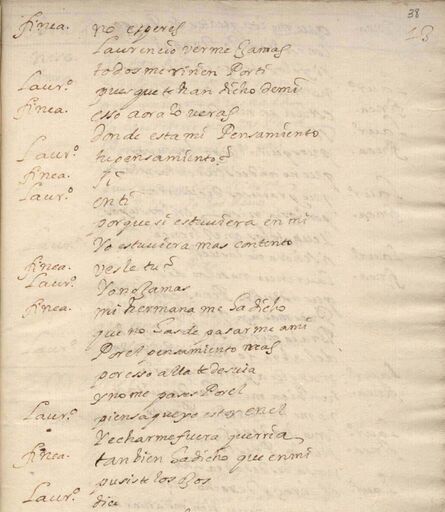 38
finea. no esperes
Laurencio verme Jamas
todos me riñen Por ti
Laur.º pues que te han dicho de mi
finea. esso aora lo veras
donde esta mi Pensamiento
Laur.º tu pensamiento?
finea. si
Laur.º en ti
porque si estuviera en mi
Yo estuviera mas contento
finea. vesle tu?
Laur.º Yo no Jamas
finea. mi hermana me ha dicho
que no has de pasarme a mi
Por el pensamiento mas
por esso alla te desvia
y no me pases Por el
Laur.º piensa que yo estoy en el
Y echarme fuera querria
finea. tanbien ha dicho que en mi
pusiste los ojos
Laur.º dice